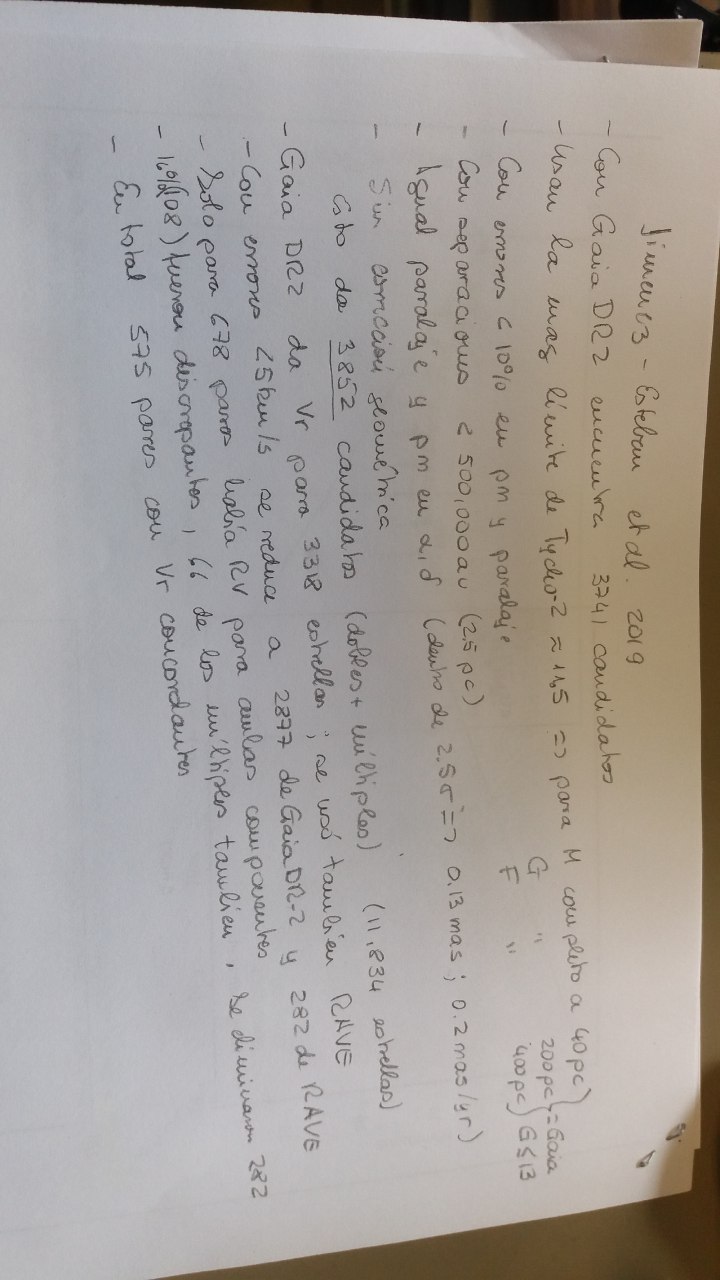 Jimenez - Esteban et al. 2019
- Con Gaia DR2 encuentra 3741 candidatos
- Usan la mag límite de Tycho-2 ≈ 11,5 => para M completo a 40pc
G " 200pc = Gaia
F " 400pc G ≤ 13
- Con errores < 10% en pm y paralaje
- Con separaciones < 500,000 au (2.5 pc)
- Igual paralaje y pm en α, δ (dentro de 2.5σ => 0.13 mas ; 0.2 mas/yr)
- Sin corrección geométrica
Esto da 3852 candidatos (dobles + múltiples) (11,834 estrellas)
- Gaia DR2 da Vr para 3318 estrellas ; se usó tambien RAVE
- Con errores <5km/s se reduce a 2877 de Gaia DR-2 y 282 de RAVE
- Solo para 678 pares había RV para ambas componentes
- 16% (108) fueron discrepantes, 66 de los múltiples tambien, se eliminaron 282
- En total 575 pares con Vr concordantes